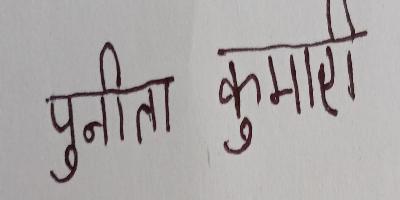 पुनीता कुमारी